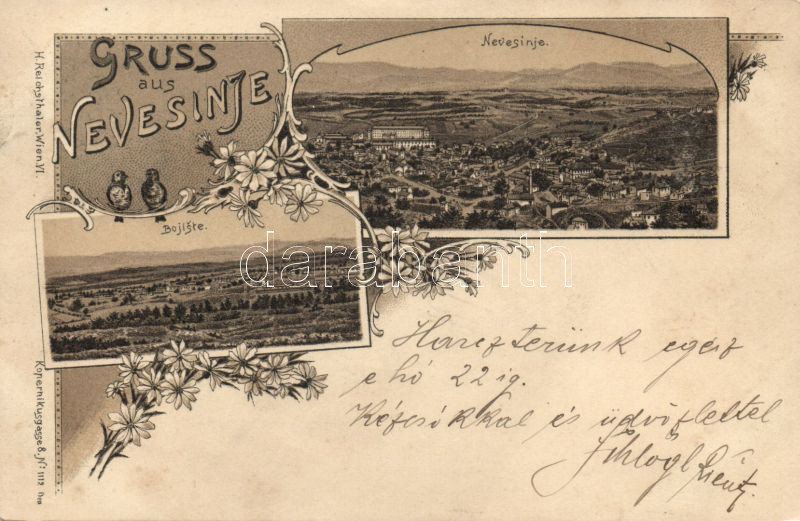 GRUSS
aus
NEVESINJE
Nevesinje.
Bojište.
H. Reichsthaler, Wien. VI.
Kopernikusgasse 8. No 1112
darabanth
Harczterünk egesz
e hó 22 ig.
Kézcsókkal és üdvözlettel
Schlögl